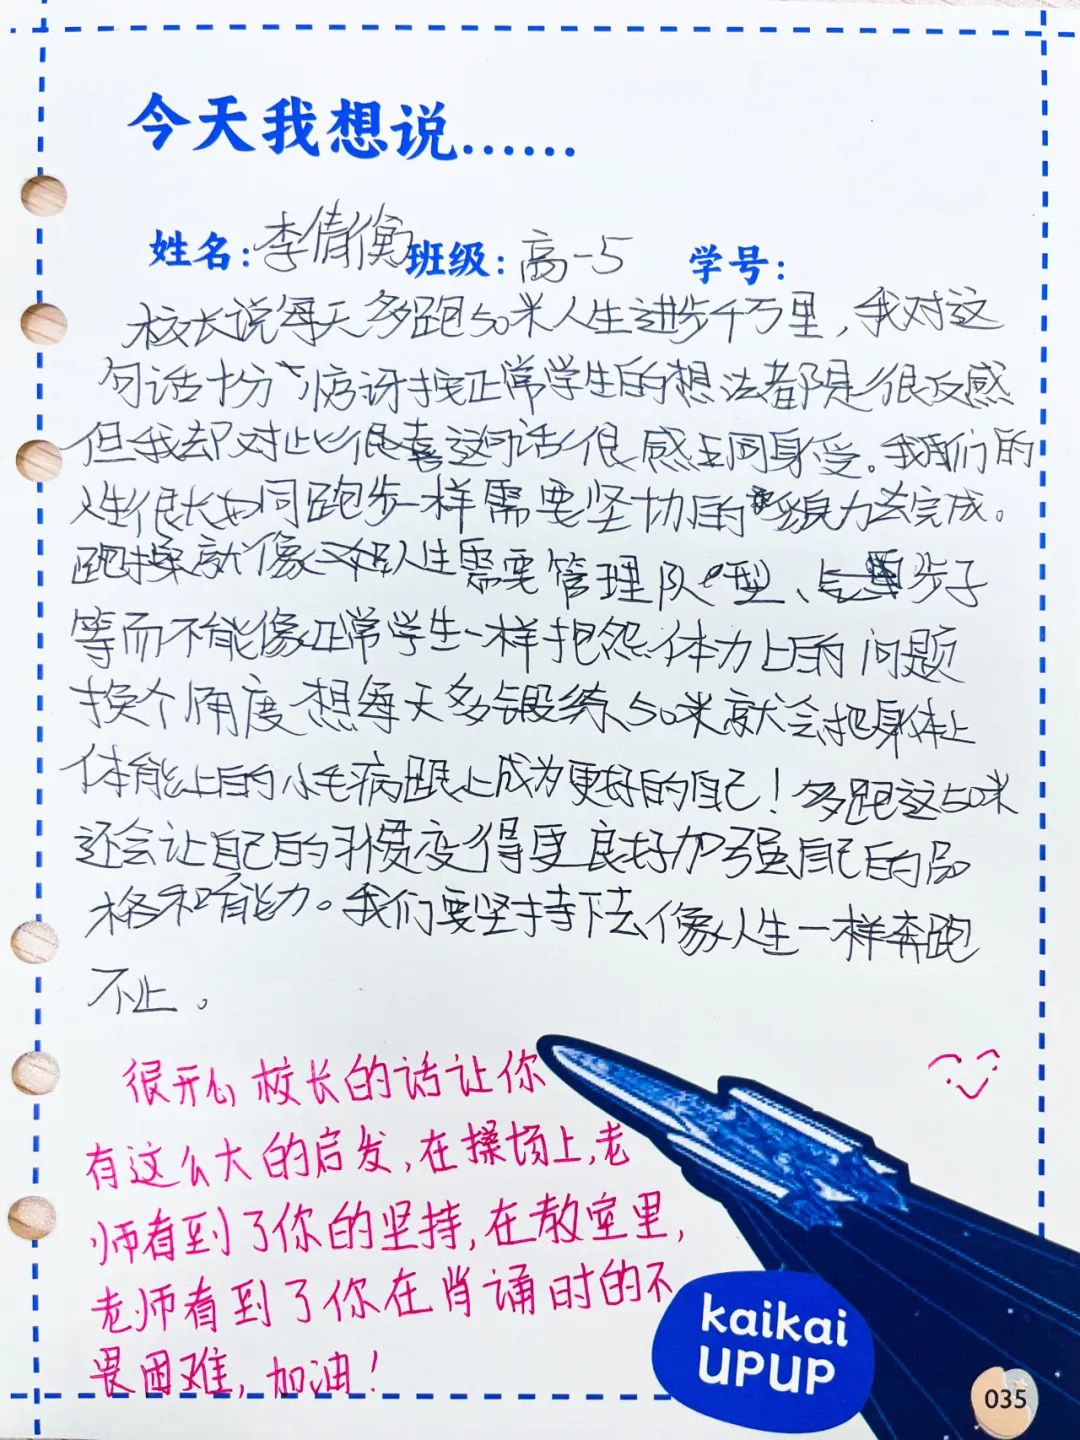 今天我想说......
姓名:李倩衡 班级:高一5 学号:
校长说每天多跑50米人生进步千万里，我对这
句话十分惊讶我正常学生的想法都是很反感
但我却对此很喜这句话很感五同身受。我们的
人生很长如同跑步一样需要坚切的毅力去完成。
跑操就像人生需要管理队型、步子
等而不能像正常学生一样抱怨体力上的问题
换个角度想每天多锻练50米就会把身体上
体能上的小毛病跟上成为更好的自己！多跑这50米
还会让自己的习惯变得更良好加强自己的品
格和能力。我们要坚持下去像人生一样奔跑
不止。
很开心校长的话让你
有这么大的启发,在操场上,老
师看到了你的坚持,在教室里,
老师看到了你在背诵时的不
畏困难,加油!
kaikai
UPUP
035